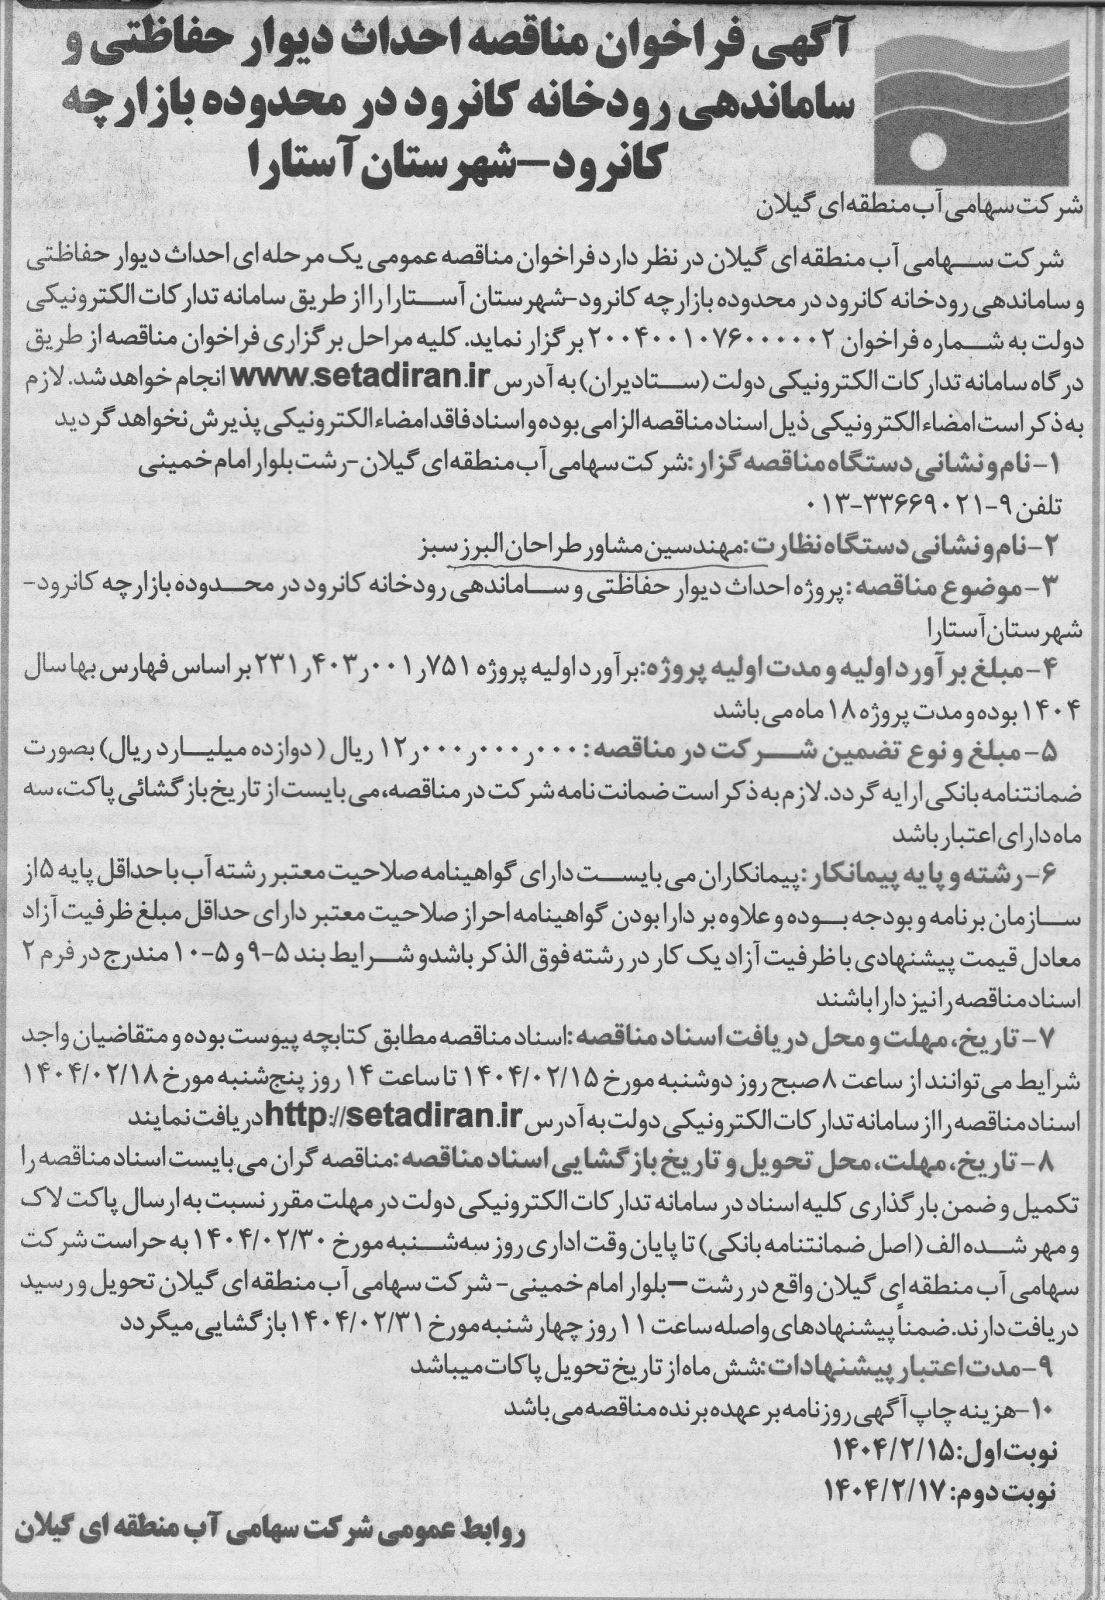 آگهی فراخوان مناقصه احداث دیوار حفاظتی و
ساماندهی رودخانه کانرود در محدوده بازارچه
کانرود-شهرستان آستارا
شرکت سهامی آب منطقه ای گیلان
شرکت سهامی آب منطقه ای گیلان در نظر دارد فراخوان مناقصه عمومی یک مرحله ای احداث دیوار حفاظتی
و ساماندهی رودخانه کانرود در محدوده بازارچه کانرود-شهرستان آستارا را از طریق سامانه تدارکات الکترونیکی
دولت به شماره فراخوان ۲۰۰۴۰۰۱۰۷۶۰۰۰۰۰۲ برگزار نماید. کلیه مراحل برگزاری فراخوان مناقصه از طریق
درگاه سامانه تدارکات الکترونیکی دولت (ستادیران) به آدرس www.setadiran.ir انجام خواهد شد. لازم
به ذکر است امضاء الکترونیکی ذیل اسناد مناقصه الزامی بوده و اسناد فاقد امضاء الکترونیکی پذیرش نخواهد گردید
۱- نام و نشانی دستگاه مناقصه گزار: شرکت سهامی آب منطقه ای گیلان-رشت بلوار امام خمینی
تلفن ۹-۳۳۶۶۹۰۲۱-۰۱۳
۲- نام و نشانی دستگاه نظارت: مهندسین مشاور طراحان البرز سبز
۳- موضوع مناقصه: پروژه احداث دیوار حفاظتی و ساماندهی رودخانه کانرود در محدوده بازارچه کانرود-
شهرستان آستارا
۴- مبلغ برآورد اولیه و مدت اولیه پروژه: برآورد اولیه پروژه ۲۳۱ر۴۰۳ر۰۰۱ر۷۵۱ بر اساس فهارس بها سال
۱۴۰۴ بوده و مدت پروژه ۱۸ ماه می باشد
۵- مبلغ و نوع تضمین شرکت در مناقصه: ۱۲ر۰۰۰ر۰۰۰ر۰۰۰ ریال (دوازده میلیارد ریال) بصورت
ضمانتنامه بانکی ارایه گردد. لازم به ذکر است ضمانت نامه شرکت در مناقصه، می بایست از تاریخ بازگشائی پاکت، سه
ماه دارای اعتبار باشد
۶- رشته و پایه پیمانکار: پیمانکاران می بایست دارای گواهینامه صلاحیت معتبر رشته آب با حداقل پایه ۵ از
سازمان برنامه و بودجه بوده و علاوه بر دارا بودن گواهینامه احراز صلاحیت معتبر دارای حداقل مبلغ ظرفیت آزاد
معادل قیمت پیشنهادی با ظرفیت آزاد یک کار در رشته فوق الذکر باشد و شرایط بند ۵-۹ و ۵-۱۰ مندرج در فرم ۲
اسناد مناقصه را نیز دارا باشند
۷- تاریخ، مهلت و محل دریافت اسناد مناقصه: اسناد مناقصه مطابق کتابچه پیوست بوده و متقاضیان واجد
شرایط می توانند از ساعت ۸ صبح روز دوشنبه مورخ ۱۴۰۴/۰۲/۱۵ تا ساعت ۱۴ روز پنج شنبه مورخ ۱۴۰۴/۰۲/۱۸
اسناد مناقصه را از سامانه تدارکات الکترونیکی دولت به آدرس http://setadiran.ir دریافت نمایند
۸- تاریخ، مهلت، محل تحویل و تاریخ بازگشایی اسناد مناقصه: مناقصه گران می بایست اسناد مناقصه را
تکمیل و ضمن بارگذاری کلیه اسناد در سامانه تدارکات الکترونیکی دولت در مهلت مقرر نسبت به ارسال پاکت لاک
و مهر شده الف (اصل ضمانتنامه بانکی) تا پایان وقت اداری روز سه شنبه مورخ ۱۴۰۴/۰۲/۳۰ به حراست شرکت
سهامی آب منطقه ای گیلان واقع در رشت – بلوار امام خمینی- شرکت سهامی آب منطقه ای گیلان تحویل و رسید
دریافت دارند. ضمناً پیشنهادهای واصله ساعت ۱۱ روز چهارشنبه مورخ ۱۴۰۴/۰۲/۳۱ بازگشایی میگردد
۹- مدت اعتبار پیشنهادات: شش ماه از تاریخ تحویل پاکات میباشد
۱۰- هزینه چاپ آگهی روزنامه بر عهده برنده مناقصه می باشد
نوبت اول: ۱۴۰۴/۲/۱۵
نوبت دوم: ۱۴۰۴/۲/۱۷
روابط عمومی شرکت سهامی آب منطقه ای گیلان